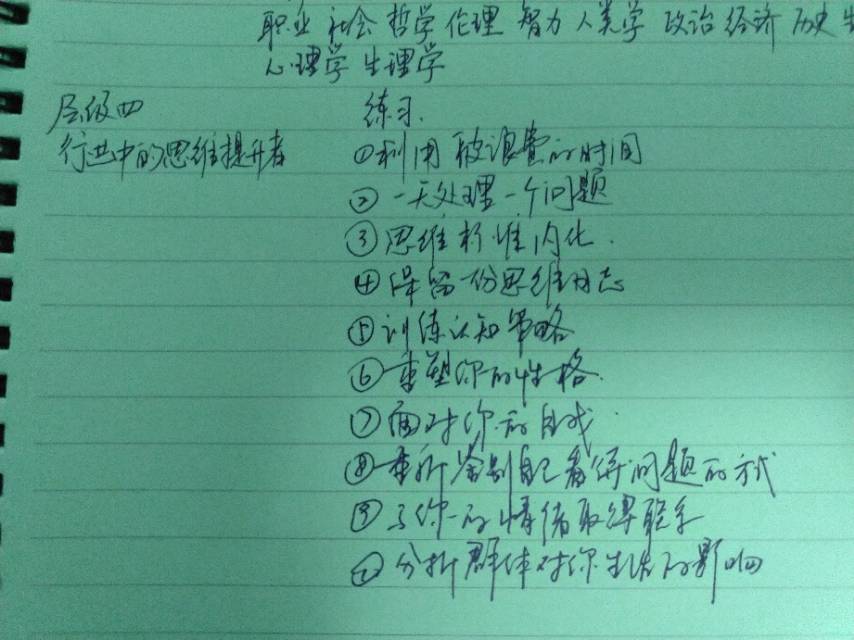 职业 社会 哲学 伦理 智力 人类学 政治 经济 历史 生
心理学 生理学
层级四 练习.
行进中的思维提升者 ①利用被浪费的时间
② 一天处理一个问题
③ 思维标准内化.
④ 保留一份思维日志
⑤ 训练认知策略
⑥ 重塑你的性格.
⑦ 面对你的自我.
⑧ 重新鉴别自己看待问题的方式
⑨ 与你的情绪取得联系
⑩ 分析群体对你生活的影响